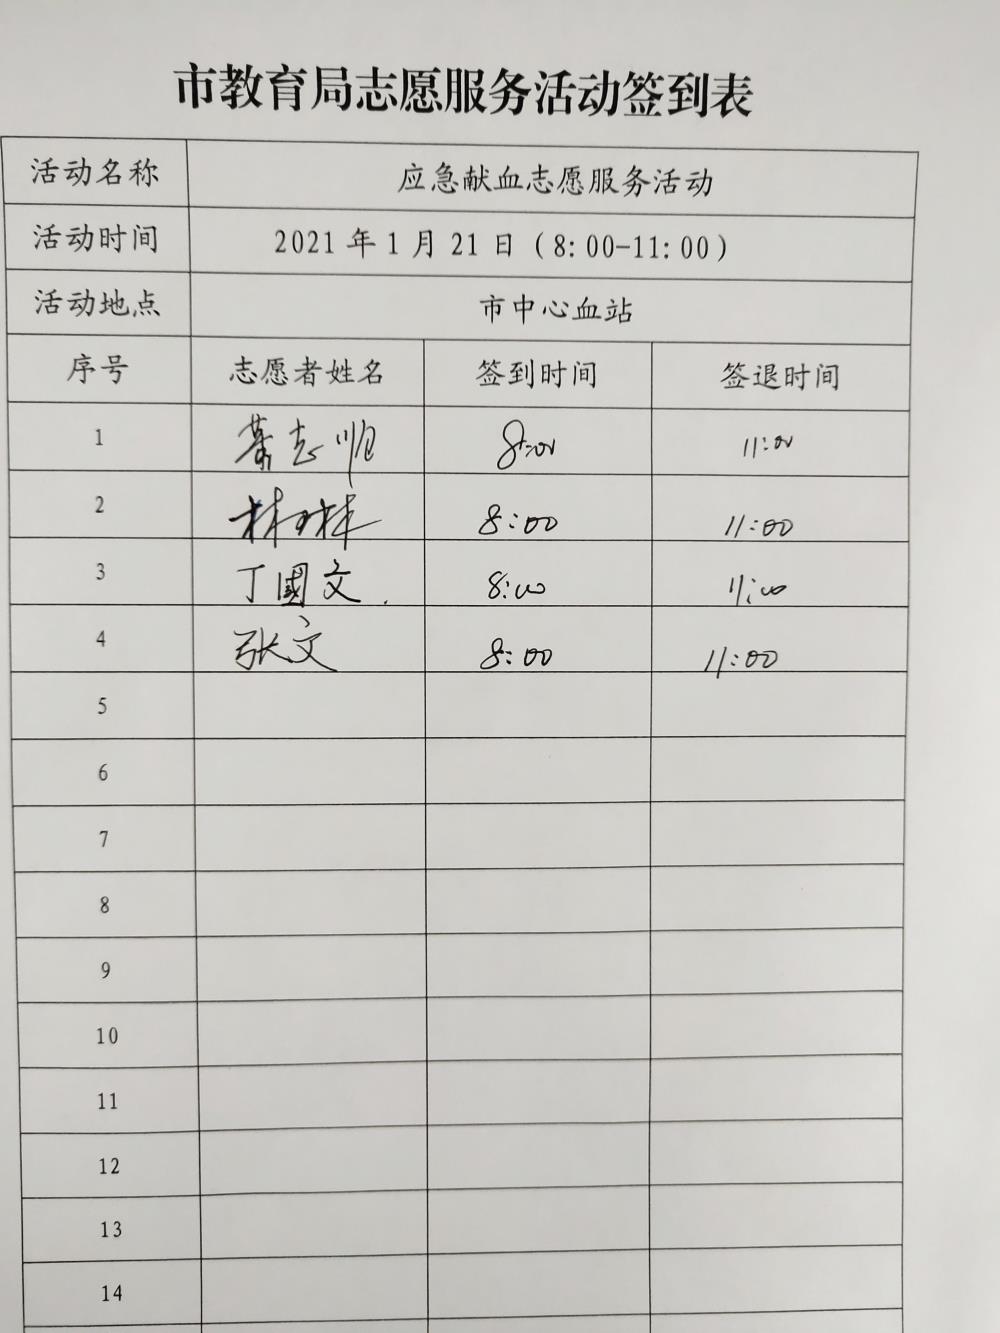 市教育局志愿服务活动签到表
活动名称 应急献血志愿服务活动
活动时间 2021年1月21日（8:00-11:00）
活动地点 市中心血站
序号 志愿者姓名 签到时间 签退时间
1 志顺 8:00 11:00
2 林 8:00 11:00
3 丁國文 8:00 11:00
4 张文 8:00 11:00
5
6
7
8
9
10
11
12
13
14